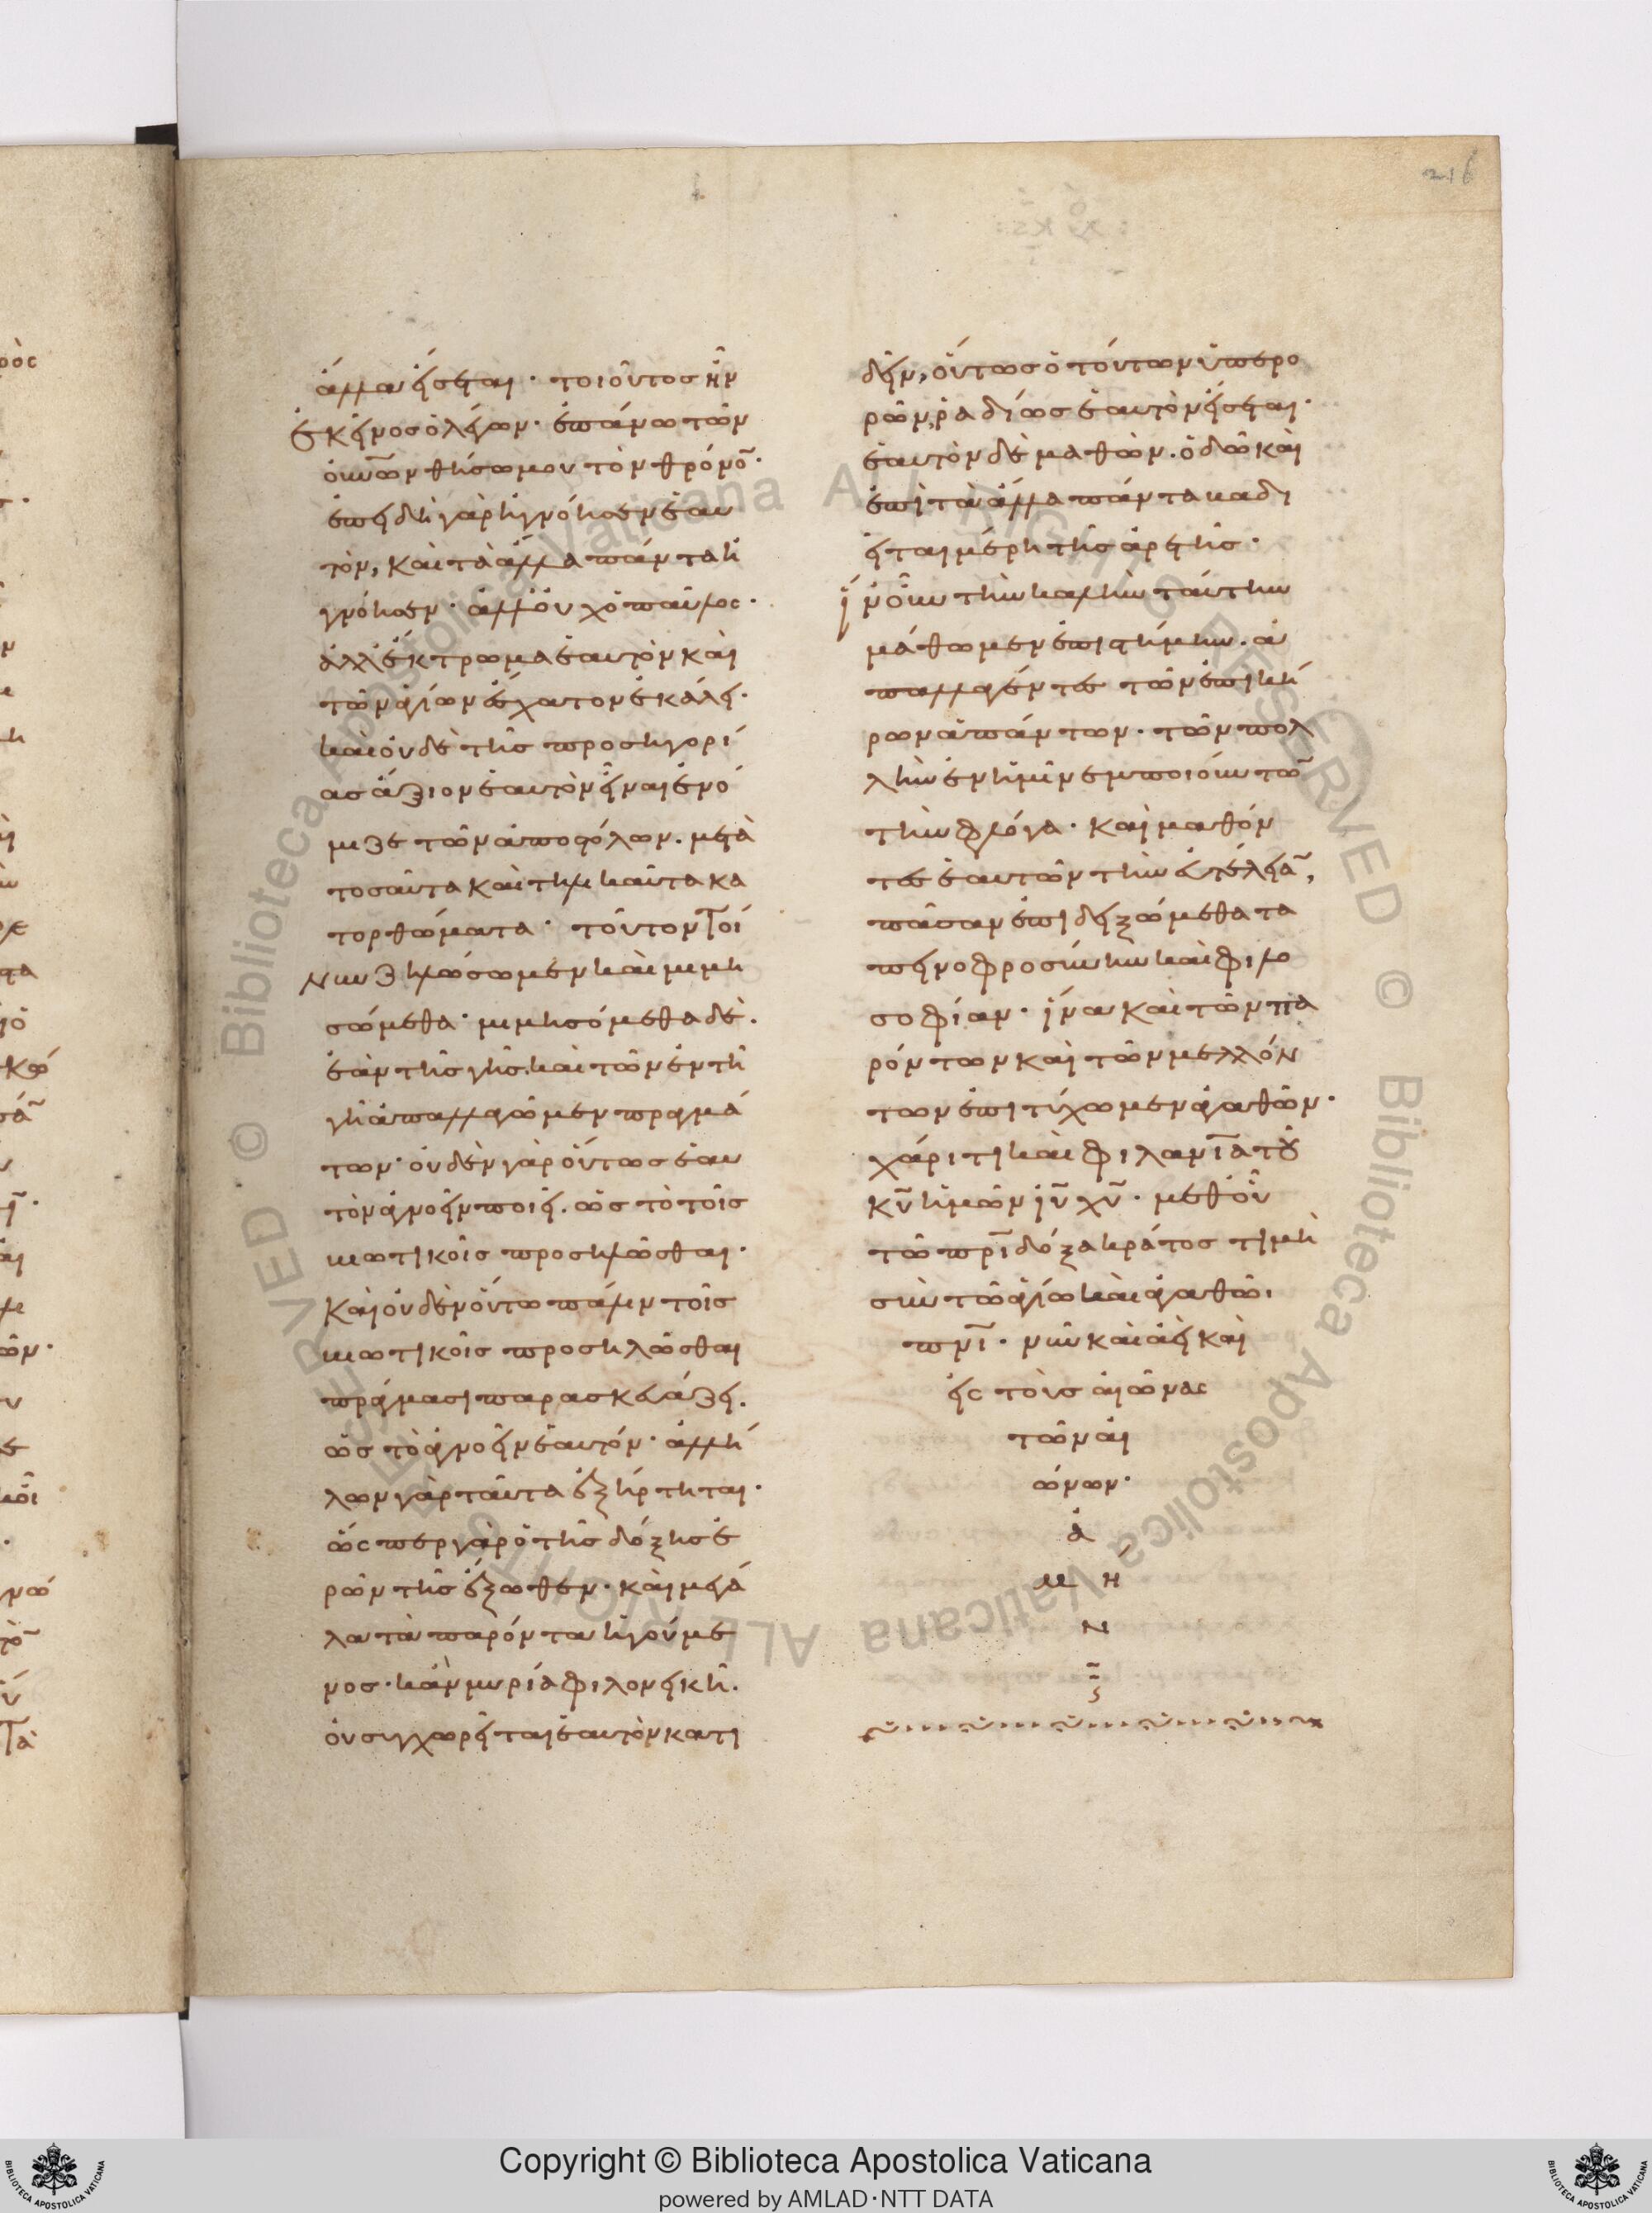 216
ἄλλα εἴσεται· τοιοῦτος ἦν
ἐκεῖνος ὁ λέγων· ἐπάνω τῶν
οὐνῶν θήσω μου τὸν θρόνο̅·
ἐπειδὴ γὰρ ἠγνόησεν ἑαυ
τὸν, καὶ τὰ ἄλλα πάντα ἠ
γνόησεν· ἀλλ' οὐχ ὁ παῦλος·
ἀλλ' ἔκτρωμα ἑαυτὸν καὶ
τῶν ἁγίων ἔσχατον ἐκάλει·
καὶ οὐδὲ τῆς προσηγορί
ας ἄξιον ἑαυτὸν εἶναι ἐνό
μιζε τῶν ἀποστόλων. μετὰ
τοσαῦτα καὶ τηλικαῦτα κα
τορθώματα· τοῦτον τοί
νυν ζηλώσωμεν καὶ μιμη
σώμεθα· μιμησόμεθα δὲ.
ἐὰν τῆς γῆς καὶ τῶν ἐν τῆ
γῆ ἀπαλλαγῶμεν πραγμά
των· οὐδὲν γὰρ οὕτως ἑαυ
τὸν ἀγνοεῖν ποιεῖ. ὡς τὸ τοῖς
βιωτικοῖς προσηλῶσθαι·
καὶ οὐδὲν οὕτω πάλιν τοῖς
βιωτικοῖς προσηλῶσθαι
πράγμασι παρασκευάζει.
ὡς τὸ ἀγνοεῖν ἑαυτόν· ἀλλή
λων γὰρ ταῦτα ἐξήρτηται·
ὥσπερ γὰρ ὁ τῆς δόξης ἐ
ρῶν τῆς ἔξωθεν· καὶ μεγά
λα τὰ παρόντα ἡγούμε
νος· κἂν μυρία φιλονεικῆ.
οὐ συγχωρεῖται ἑαυτὸν κατι
δεῖν, οὕτως ὁ τούτων ὑπερο
ρῶν, ῥαδίως ἑαυτὸν εἴσεται·
ἑαυτὸν δὲ μαθὼν. ὁδῶ καὶ
ἐπὶ τὰ ἄλλα πάντα βαδι
εῖται μέρη τῆς ἀρετῆς·
ἵν' οὖν τὴν καλὴν ταύτην
μάθωμεν ἐπιστήμην. ἀ
παλλαγέντες τῶν ἐπική
ρων ἁπάντων· τῶν πολ
λὴν ἐν ἡμῖν ἐμποιούντω̅
τὴν φλόγα· καὶ μαθόν
τες ἑαυτῶν τὴν εὐτέλεια̅,
πᾶσαν ἐπιδειξώμεθα τα
πεινοφροσύνην καὶ φιλο
σοφίαν· ἵνα καὶ τῶν πα
ρόντων καὶ τῶν μελλόν
των ἐπιτύχωμεν ἀγαθῶν·
χάριτι καὶ φιλανι̅α τοῦ
κυ̅ ἡμῶν ιυ̅ χυ̅· μεθ' οὗ
τῶ πρι̅ δόξα κράτος τιμὴ
σὺν τῶ ἁγίω καὶ ἀγαθῶ
πνι̅· νῦν καὶ ἀεὶ καὶ
εἰς τοὺς αἰῶνας
τῶν αἰ
ώνων·
ἀ
μ ή
ν